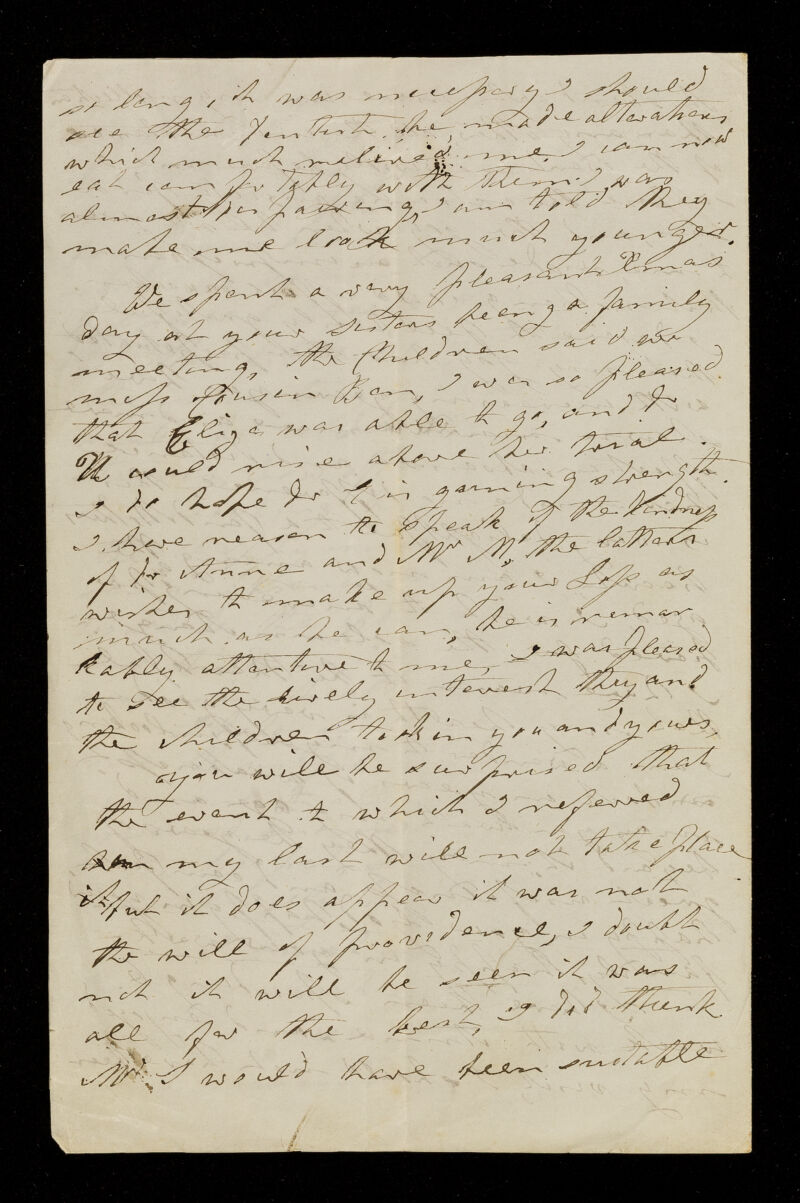 so long, it was necessary I should
see the Dentist, he made alterations
which much relieved me, I can now
eat comfortably with them, I was
almost I am told they
make me look much younger.
We spent a very pleasant Xmas
day at your sisters being a family
meeting, the Children said we
miss Cousin Ben, I was so pleased
that Eliza was able to go, and
could rise above her trial.
I do hope is gaining strength.
I have reason to speak of the kindness
of Anne and Mr M, the latter
wishes to make up your loss as
much as he can, he is remar
kably attentive to me, I was pleased
to see the lively interest they and
the children took in you and yours,
you will be surprised that
the event to which I referred
in my last will not take place
but it does appear it was not
the will of providence, I doubt
not it will be seen it was
all for the best, I did think
Mr would have been suitable